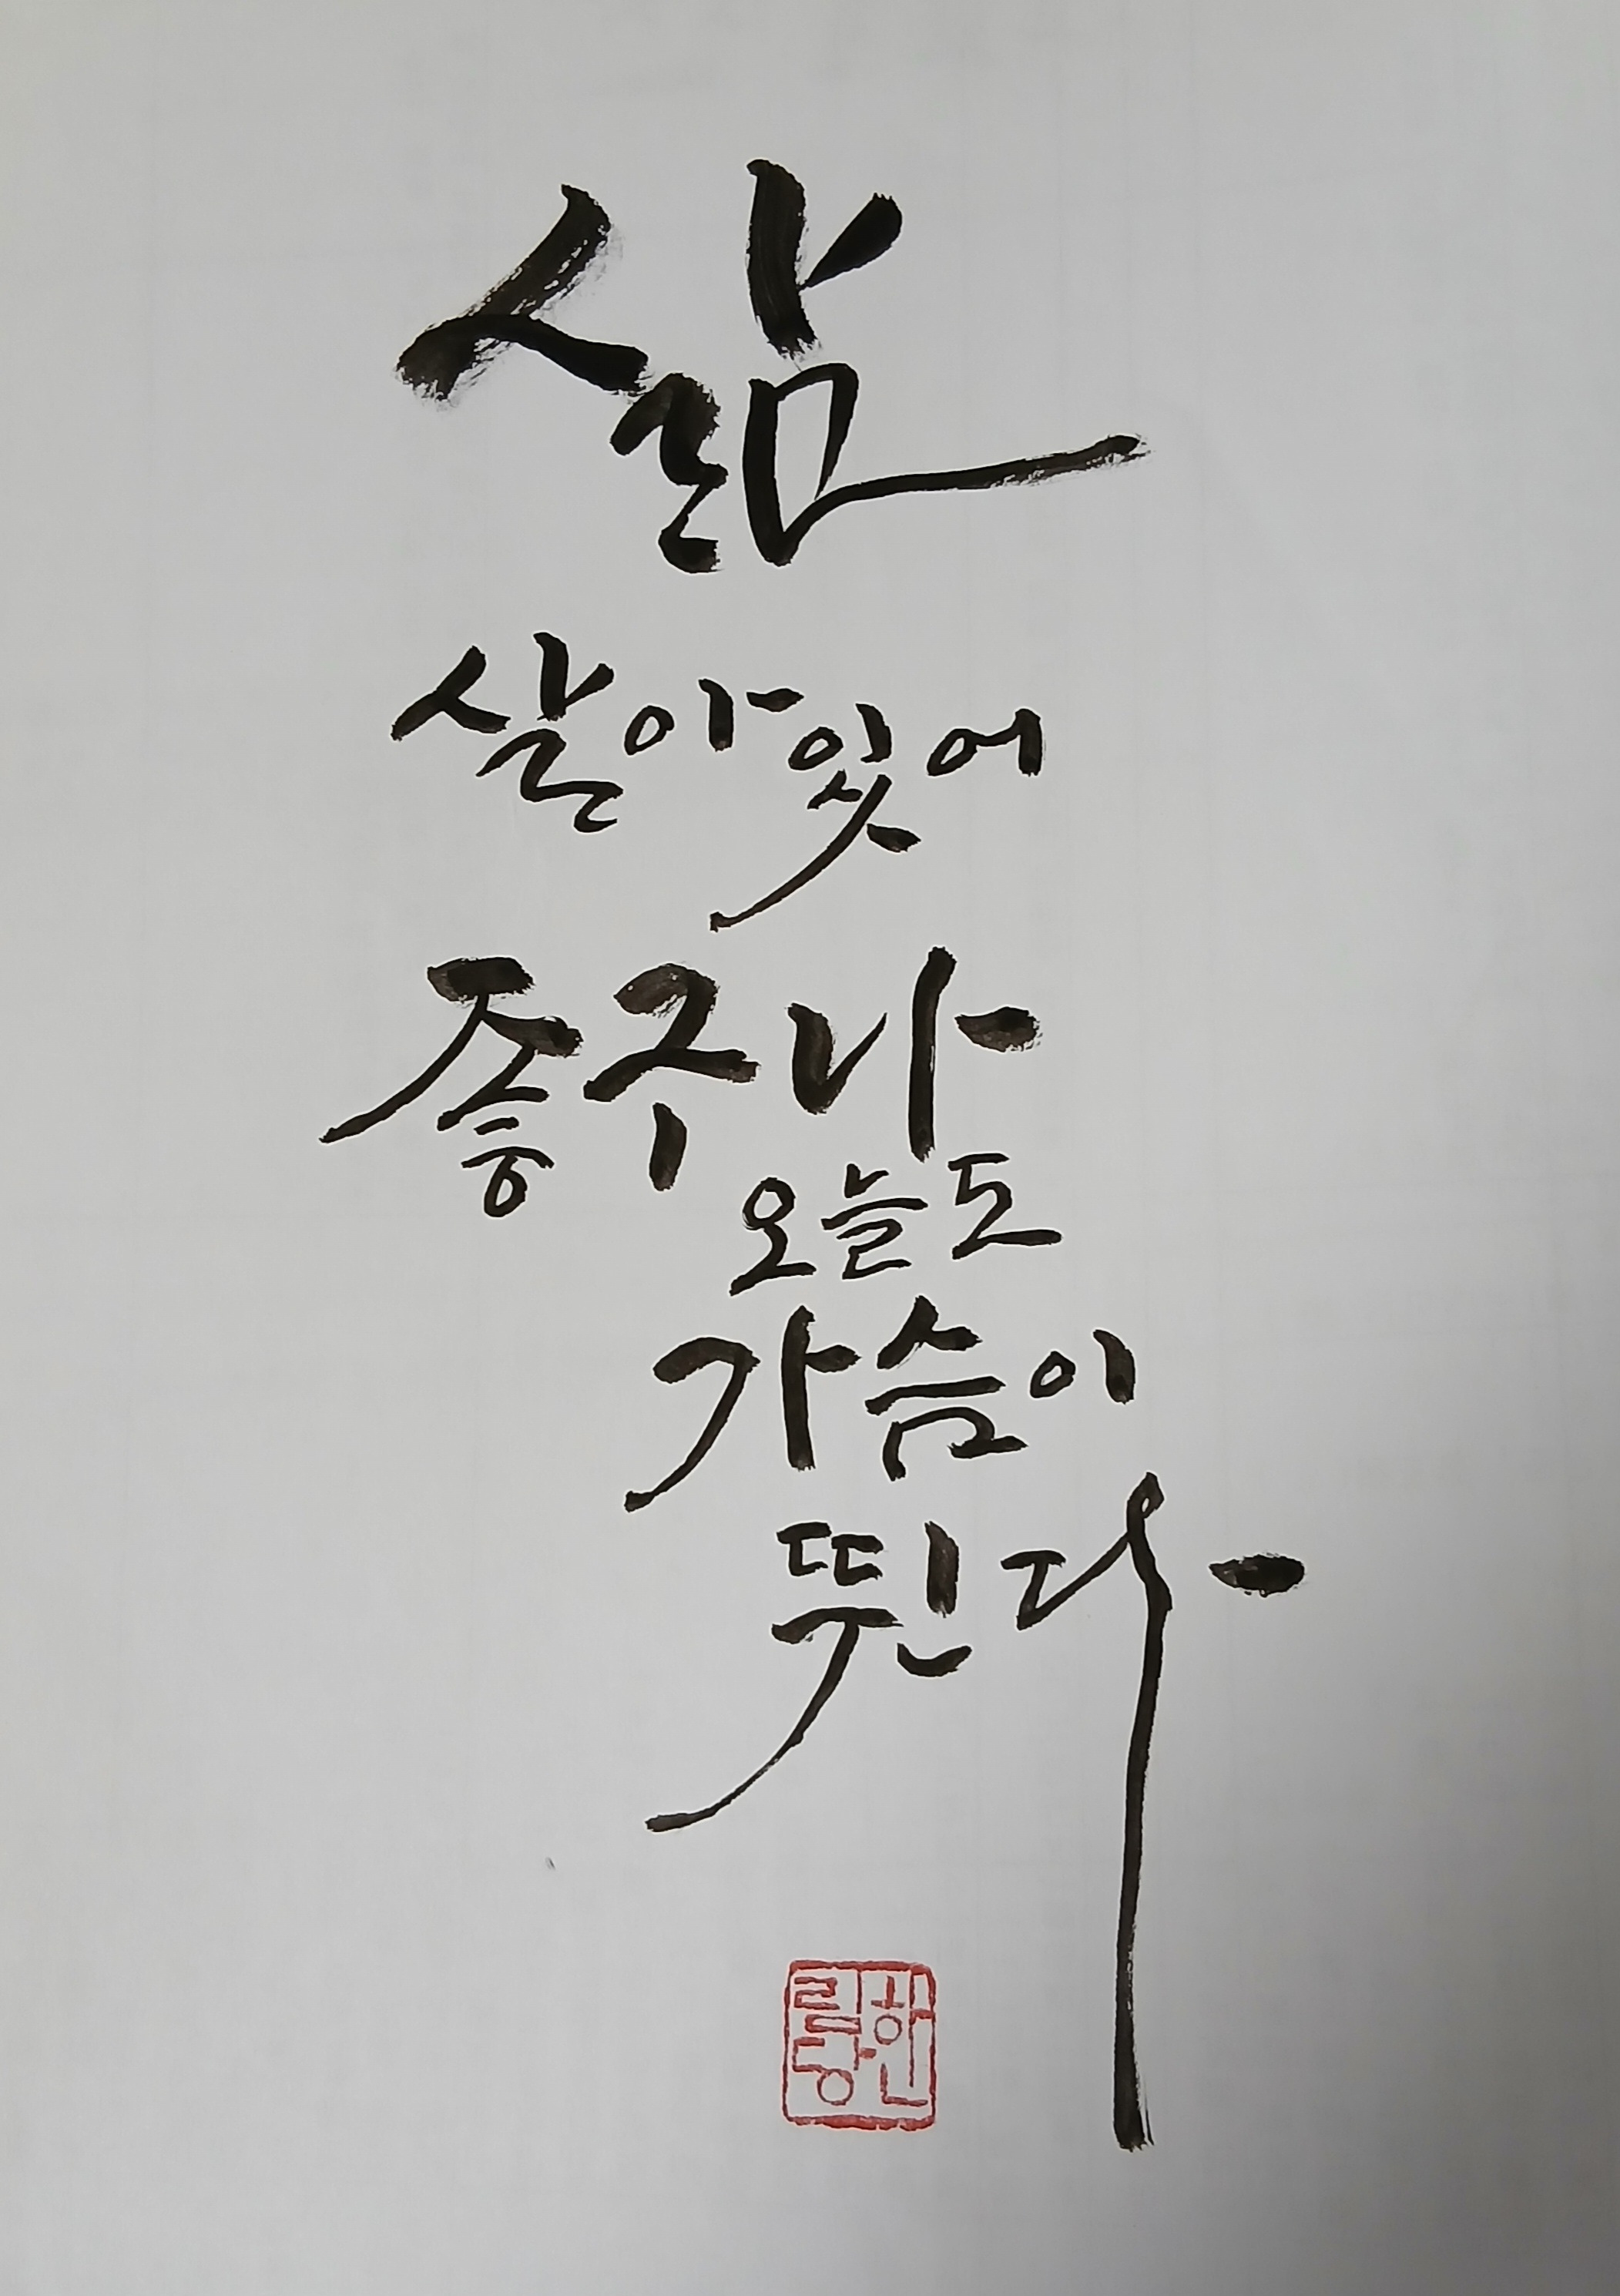 삶
살아있어
좋구나
오늘도
가슴이
뛴다